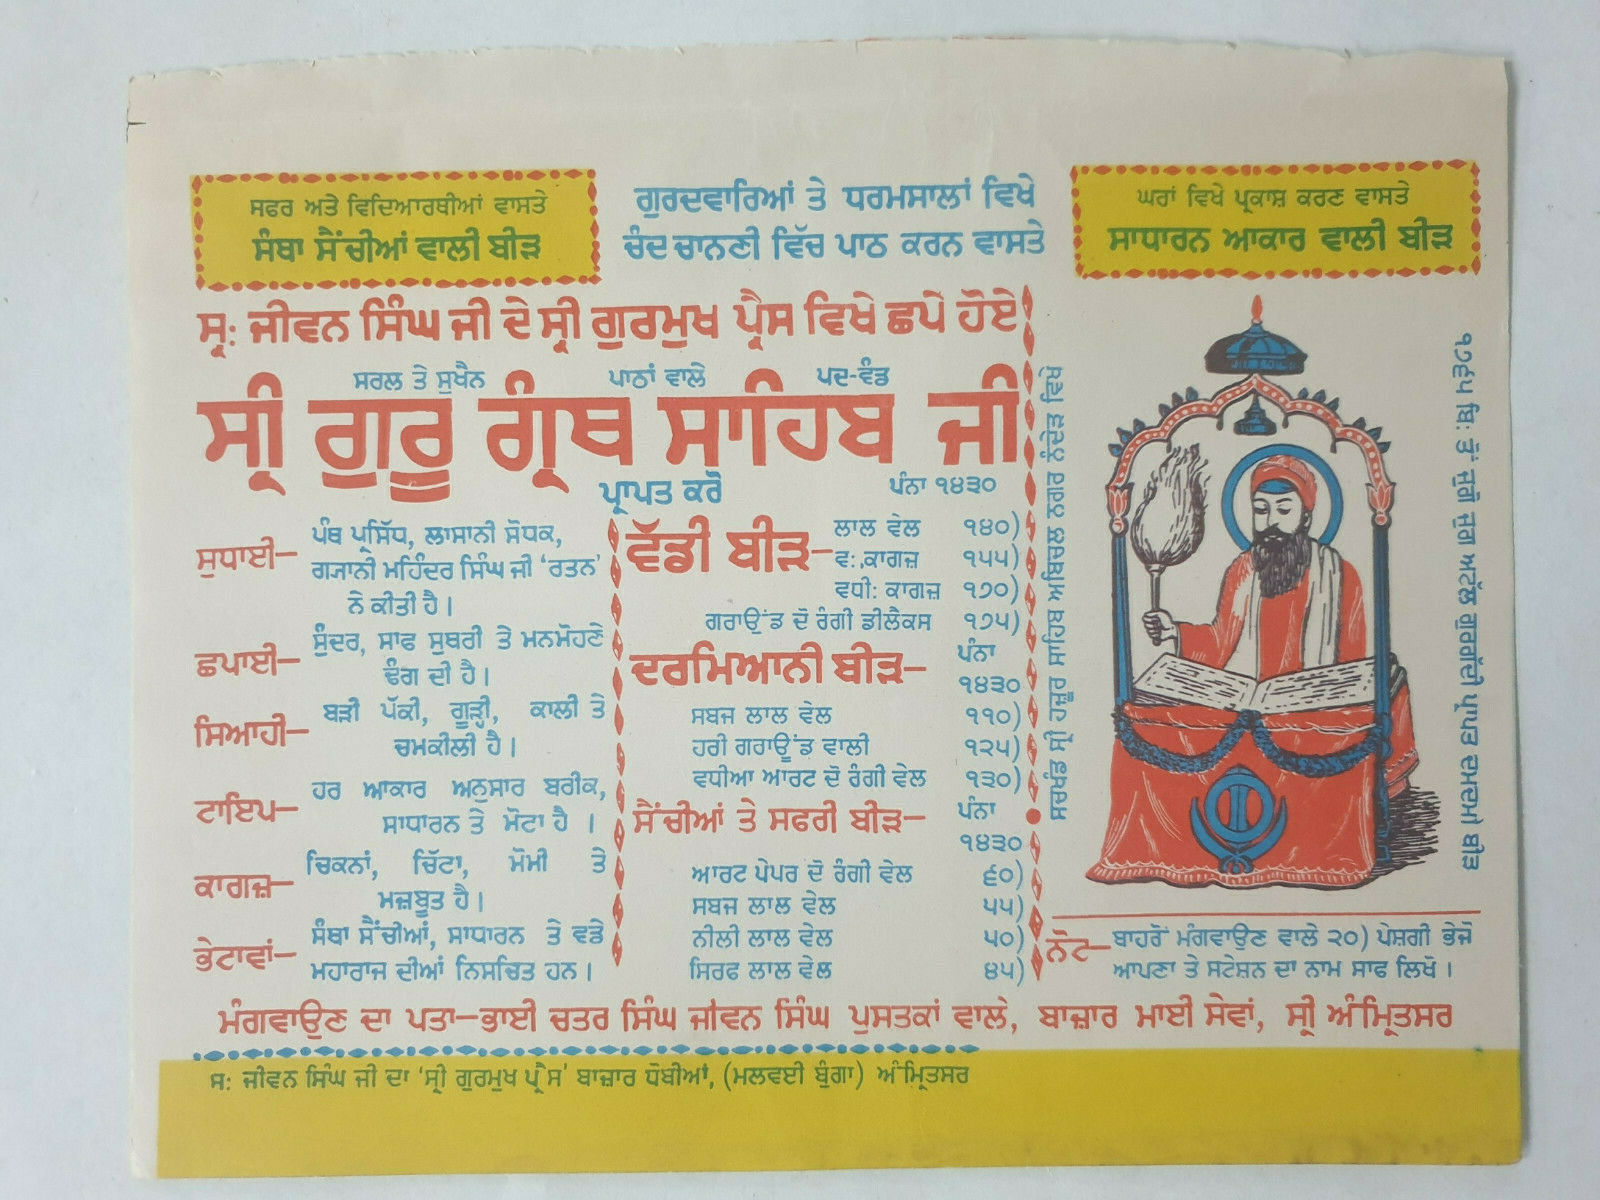 ਸਫਰ ਅਤੇ ਵਿਦਿਆਰਥੀਆਂ ਵਾਸਤੇ
ਸੰਥਾ ਸੈਂਚੀਆਂ ਵਾਲੀ ਬੀੜ
ਗੁਰਦਵਾਰਿਆਂ ਤੇ ਧਰਮਸਾਲਾਂ ਵਿਖੇ
ਚੰਦ ਚਾਨਣੀ ਵਿੱਚ ਪਾਠ ਕਰਨ ਵਾਸਤੇ
ਘਰਾਂ ਵਿਖੇ ਪ੍ਰਕਾਸ਼ ਕਰਣ ਵਾਸਤੇ
ਸਾਧਾਰਨ ਆਕਾਰ ਵਾਲੀ ਬੀੜ
ਸ੍ਰ: ਜੀਵਨ ਸਿੰਘ ਜੀ ਦੇ ਸ੍ਰੀ ਗੁਰਮੁਖ ਪ੍ਰੈਸ ਵਿਖੇ ਛਪੇ ਹੋਏ
ਸਰਲ ਤੇ ਸੁਖੈਨ ਪਾਠਾਂ ਵਾਲੇ ਪਦ-ਵੰਡ
ਸ੍ਰੀ ਗੁਰੂ ਗ੍ਰੰਥ ਸਾਹਿਬ ਜੀ
ਪ੍ਰਾਪਤ ਕਰੋ
ਪੰਨਾ ੧੪੩੦
ਸੁਧਾਈ— ਪੰਥ ਪ੍ਰਸਿੱਧ, ਲਾਸਾਨੀ ਸੋਧਕ,
ਗ੍ਯਾਨੀ ਮਹਿੰਦਰ ਸਿੰਘ ਜੀ ‘ਰਤਨ’
ਨੇ ਕੀਤੀ ਹੈ।
ਛਪਾਈ— ਸੁੰਦਰ, ਸਾਫ ਸੁਥਰੀ ਤੇ ਮਨਮੋਹਣੇ
ਢੰਗ ਦੀ ਹੈ।
ਸਿਆਹੀ— ਬੜੀ ਪੱਕੀ, ਗੂੜ੍ਹੀ, ਕਾਲੀ ਤੇ
ਚਮਕੀਲੀ ਹੈ।
ਟਾਇਪ— ਹਰ ਆਕਾਰ ਅਨੁਸਾਰ ਬਰੀਕ,
ਸਾਧਾਰਨ ਤੇ ਮੋਟਾ ਹੈ ।
ਕਾਗਜ਼— ਚਿਕਨਾਂ, ਚਿੱਟਾ, ਮੋਮੀ ਤੇ
ਮਜ਼ਬੂਤ ਹੈ।
ਭੇਟਾਵਾਂ— ਸੰਥਾ ਸੈਂਚੀਆਂ, ਸਾਧਾਰਨ ਤੇ ਵਡੇ
ਮਹਾਰਾਜ ਦੀਆਂ ਨਿਸਚਿਤ ਹਨ।
ਵੱਡੀ ਬੀੜ— ਲਾਲ ਵੇਲ ੧੪੦)
ਵ:,ਕਾਗਜ਼ ੧੫੫)
ਵਧੀ: ਕਾਗਜ਼ ੧੭੦)
ਗਰਾਊਂਡ ਦੋ ਰੰਗੀ ਡੀਲੈਕਸ ੧੭੫)
ਦਰਮਿਆਨੀ ਬੀੜ— ਪੰਨਾ
੧੪੩੦
ਸਬਜ ਲਾਲ ਵੇਲ ੧੧੦)
ਹਰੀ ਗਰਾਊਂਡ ਵਾਲੀ ੧੨੫)
ਵਧੀਆ ਆਰਟ ਦੋ ਰੰਗੀ ਵੇਲ ੧੩੦)
ਸੈਂਚੀਆਂ ਤੇ ਸਫਰੀ ਬੀੜ— ਪੰਨਾ
੧੪੩੦
ਆਰਟ ਪੇਪਰ ਦੋ ਰੰਗੀ ਵੇਲ ੬੦)
ਸਬਜ ਲਾਲ ਵੇਲ ੫੫)
ਨੀਲੀ ਲਾਲ ਵੇਲ ੫੦)
ਸਿਰਫ ਲਾਲ ਵੇਲ ੪੫)
ਸਚਖੰਡ ਸ੍ਰੀ ਹਜ਼ੂਰ ਸਾਹਿਬ ਅਬਿਚਲ ਨਗਰ ਨੰਦੇੜ ਵਿਖੇ
੧੭੬੫ ਬਿ: ਤੋਂ ਜੁਗੋ ਜੁਗ ਅਟੱਲ ਗੁਰਗੱਦੀ ਪ੍ਰਾਪਤ ਦਮਦਮੀ ਬੀੜ
ਨੋਟ— ਬਾਹਰੋਂ ਮੰਗਵਾਉਣ ਵਾਲੇ ੨੦) ਪੇਸ਼ਗੀ ਭੇਜੋ
ਆਪਣਾ ਤੇ ਸਟੇਸ਼ਨ ਦਾ ਨਾਮ ਸਾਫ ਲਿਖੋ ।
ਮੰਗਵਾਉਣ ਦਾ ਪਤਾ—ਭਾਈ ਚਤਰ ਸਿੰਘ ਜੀਵਨ ਸਿੰਘ ਪੁਸਤਕਾਂ ਵਾਲੇ, ਬਾਜ਼ਾਰ ਮਾਈ ਸੇਵਾਂ, ਸ੍ਰੀ ਅੰਮ੍ਰਿਤਸਰ
ਸ: ਜੀਵਨ ਸਿੰਘ ਜੀ ਦਾ ‘ਸ੍ਰੀ ਗੁਰਮੁਖ ਪ੍ਰੈਸ’ ਬਾਜ਼ਾਰ ਧੋਬੀਆਂ, (ਮਲਵਈ ਬੁੰਗਾ) ਅੰਮ੍ਰਿਤਸਰ